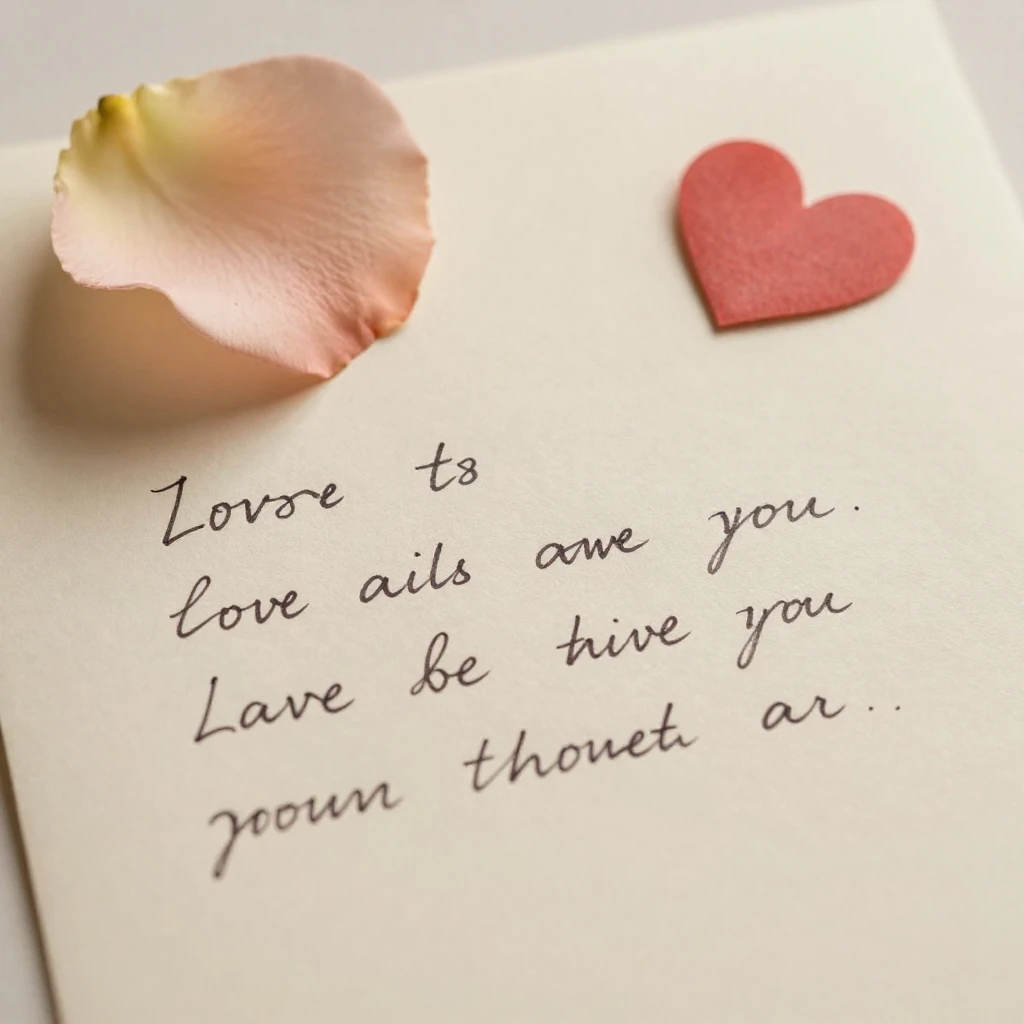 Zovsre ts
love ails awe you.
Lave be hive you
yoour thoueth ar..